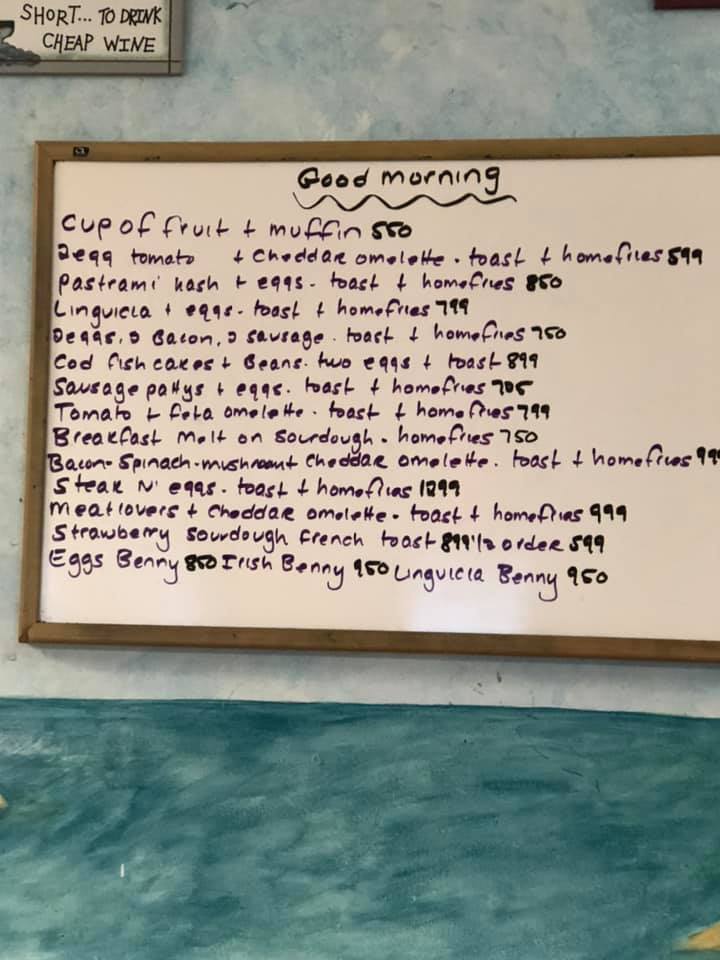 SHORT... TO DRINK
CHEAP WINE
Good morning
Cup of fruit + muffin 550
2 egg tomato + Cheddar omelette. toast + homefries 599
Pastrami hash + eggs. toast + homefries 850
Linguicia + eggs. toast + homefries 799
2 eggs, 2 Bacon, 2 sausage. toast + homefries 750
Cod fish cakes + Beans. two eggs + toast 899
Sausage pattys + eggs. toast + homefries 705
Tomato + feta omelette. toast + homefries 799
Breakfast melt on sourdough. homefries 750
Bacon-Spinach-mushroom + Cheddar omelette. toast + homefries 999
Steak N' eggs. toast + homefries 1299
meatlovers + Cheddar omelette. toast + homefries 999
Strawberry sourdough french toast 899 1/2 order 599
Eggs Benny 850 Irish Benny 950 Linguicia Benny 950